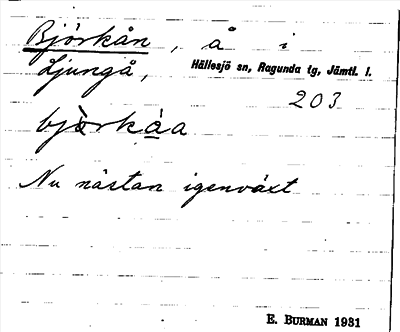 Björkån, å i
Ljungå, Hällesjö sn, Ragunda tg, Jämtl. l.
203
bjòrkåa
Nu nästan igenväxt
E. BURMAN 1931